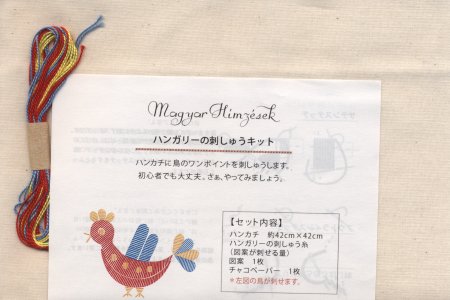 Magyar Hímzések
ハンガリーの刺しゅうキット
ハンカチに鳥のワンポイントを刺しゅうします。
初心者でも大丈夫。さぁ、やってみましょう。
【セット内容】
ハンカチ 約42cm×42cm
ハンガリーの刺しゅう糸
(図案が刺せる量)
図案 1枚
チャコペーパー 1枚
*左図の鳥が刺せます。